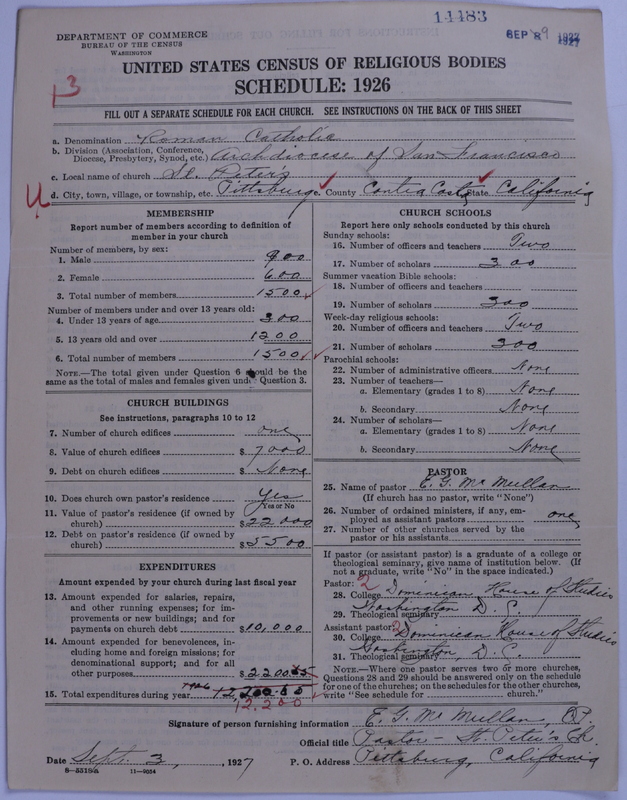 14483
SEP 8 9 1927
1927
DEPARTMENT OF COMMERCE
BUREAU OF THE CENSUS
WASHINGTON
UNITED STATES CENSUS OF RELIGIOUS BODIES
SCHEDULE: 1926
3
FILL OUT A SEPARATE SCHEDULE FOR EACH CHURCH. SEE INSTRUCTIONS ON THE BACK OF THIS SHEET
a. Denomination Roman Catholic
b. Division (Association, Conference, Diocese, Presbytery, Synod, etc.) Archdiocese of San Francisco
c. Local name of church St. Peter's
U d. City, town, village, or township, etc. Pittsburg e. County Contra Costa State California
MEMBERSHIP
Report number of members according to definition of
member in your church
Number of members, by sex:
1. Male 900
2. Female 600
3. Total number of members 1500
Number of members under and over 13 years old:
4. Under 13 years of age 300
5. 13 years old and over 1200
6. Total number of members 1500
NOTE.—The total given under Question 6 should be the
same as the total of males and females given under Question 3.
CHURCH BUILDINGS
See instructions, paragraphs 10 to 12
7. Number of church edifices one
8. Value of church edifices $ 7000
9. Debt on church edifices $ None
10. Does church own pastor's residence Yes
Yes or No
11. Value of pastor's residence (if owned by
church) $ 22000
12. Debt on pastor's residence (if owned by
church) $ 5500
EXPENDITURES
Amount expended by your church during last fiscal year
13. Amount expended for salaries, repairs,
and other running expenses; for im-
provements or new buildings; and for
payments on church debt $ 10,000
14. Amount expended for benevolences, in-
cluding home and foreign missions; for
denominational support; and for all
other purposes $ 2200
15. Total expenditures during year 1926 12,200
12,200
CHURCH SCHOOLS
Report here only schools conducted by this church
Sunday schools:
16. Number of officers and teachers Two
17. Number of scholars 300
Summer vacation Bible schools:
18. Number of officers and teachers
19. Number of scholars 300
Week-day religious schools:
20. Number of officers and teachers Two
21. Number of scholars 300
Parochial schools:
22. Number of administrative officers None
23. Number of teachers—
a. Elementary (grades 1 to 8) None
b. Secondary None
24. Number of scholars—
a. Elementary (grades 1 to 8) None
b. Secondary None
PASTOR
25. Name of pastor E. G. McMullan
(If church has no pastor, write "None")
26. Number of ordained ministers, if any, em-
ployed as assistant pastors one
27. Number of other churches served by the
pastor or his assistants
If pastor (or assistant pastor) is a graduate of a college or
theological seminary, give name of institution below. (If
not a graduate, write "No" in the space indicated.)
Pastor: 2
28. College Dominican House of Studies
29. Theological seminary Washington D. C.
Assistant pastor: 2
30. College Dominican House of Studies
31. Theological seminary Washington, D. C.
NOTE.—Where one pastor serves two or more churches,
Questions 28 and 29 should be answered only on the schedule
for one of the churches; on the schedules for the other churches,
write "See schedule for church."
Signature of person furnishing information E. G. McMullan, O.P.
Official title Pastor - St. Peter's Ch.
Date Sept. 3, 1927 P. O. Address Pittsburg, California
8—5518a 11—9064